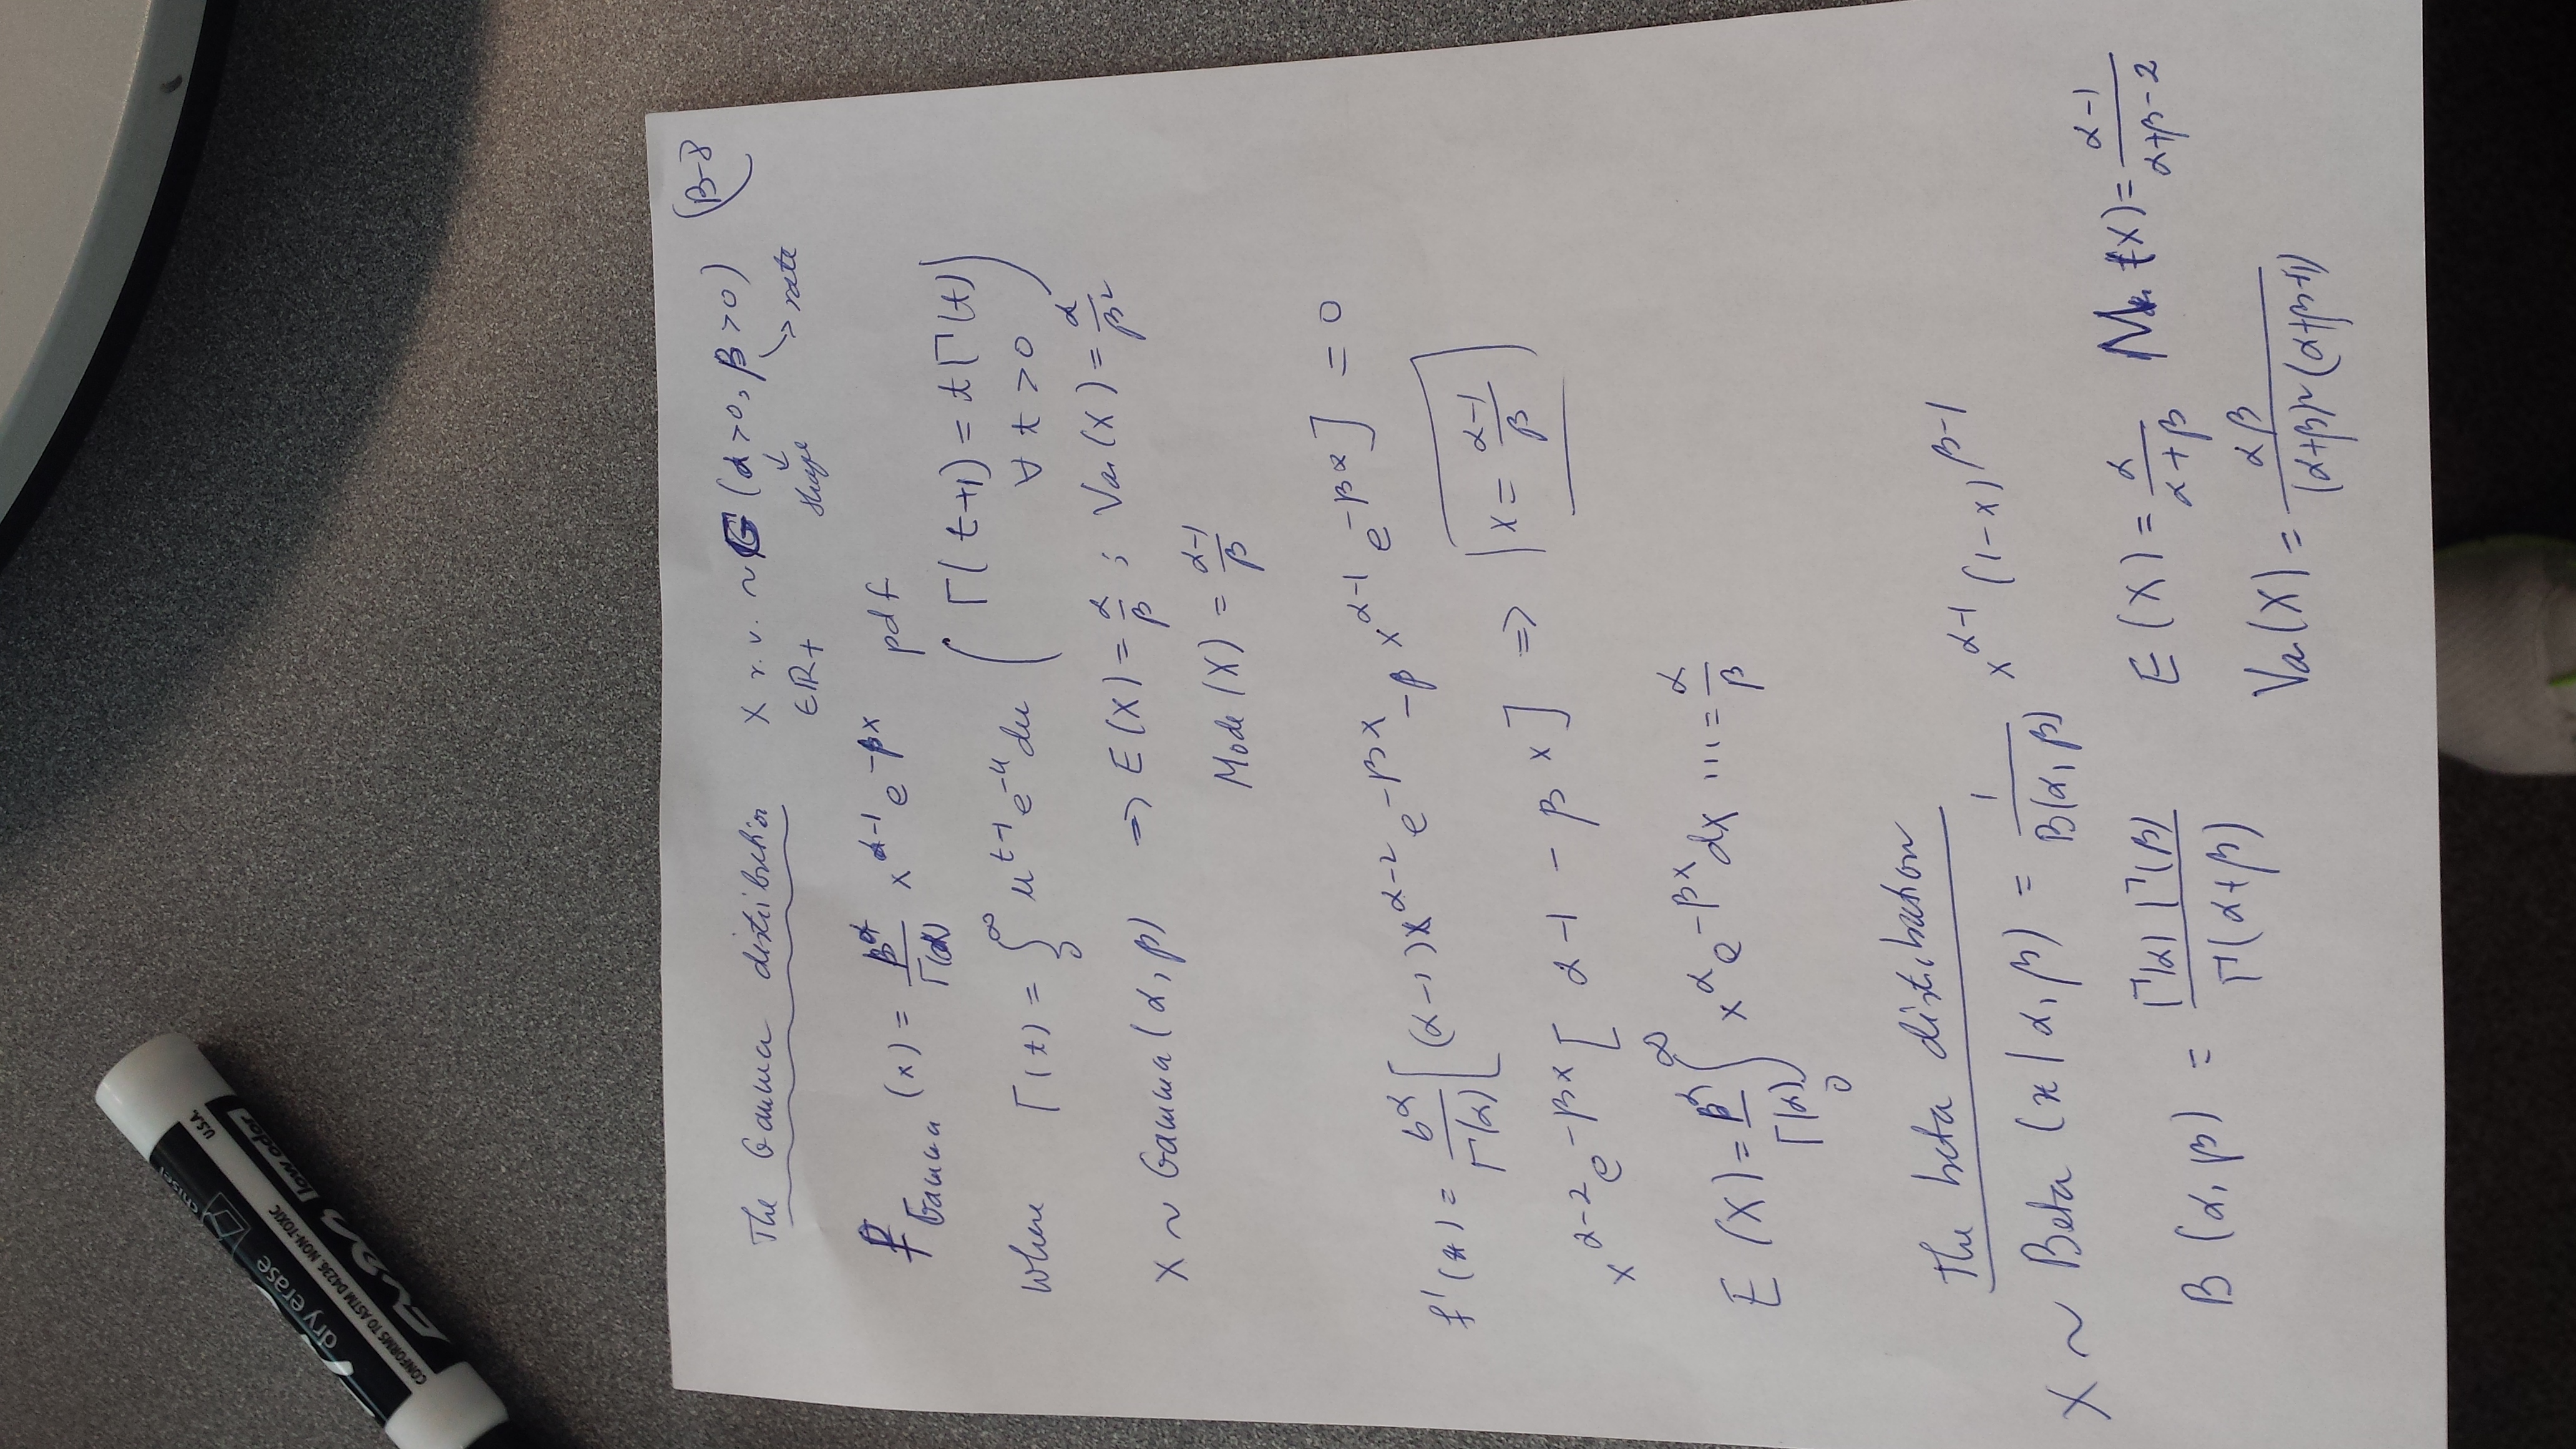 chisel
U.S.A.
dry erase
low odor
CONFORMS TO ASTM D4236. NON-TOXIC
(B-8
The Gamma distribution X r.v. ~ G (α>0, β>0)
∈ℝ+ shape rate
f Gamma (x) = β^α/Γ(α) x^(α-1) e^(-βx) pdf
where Γ(t) = ∫_0^∞ u^(t-1) e^(-u) du ( Γ(t+1) = tΓ(t) ∀ t>0 )
X ~ Gamma(α, β) ⇒ E(X) = α/β ; Var(X) = α/β²
Mode(X) = (α-1)/β
f'(x) = b^α/Γ(α) [(α-1)x^(α-2) e^(-βx) - β x^(α-1) e^(-βx)] = 0
x^(α-2) e^(-βx) [ α-1 - βx ] ⇒ x = (α-1)/β
E(X) = β^α/Γ(α) ∫_0^∞ x^α e^(-βx) dx ... = α/β
The beta distribution
X ~ Beta (x|α, β) = 1/B(α, β) x^(α-1) (1-x)^(β-1)
B(α, β) = Γ(α) Γ(β)/Γ(α+β) E(X) = α/(α+β) (X) = (α-1)/(α+β-2)
Var(X) = αβ/((α+β)²(α+β+1))